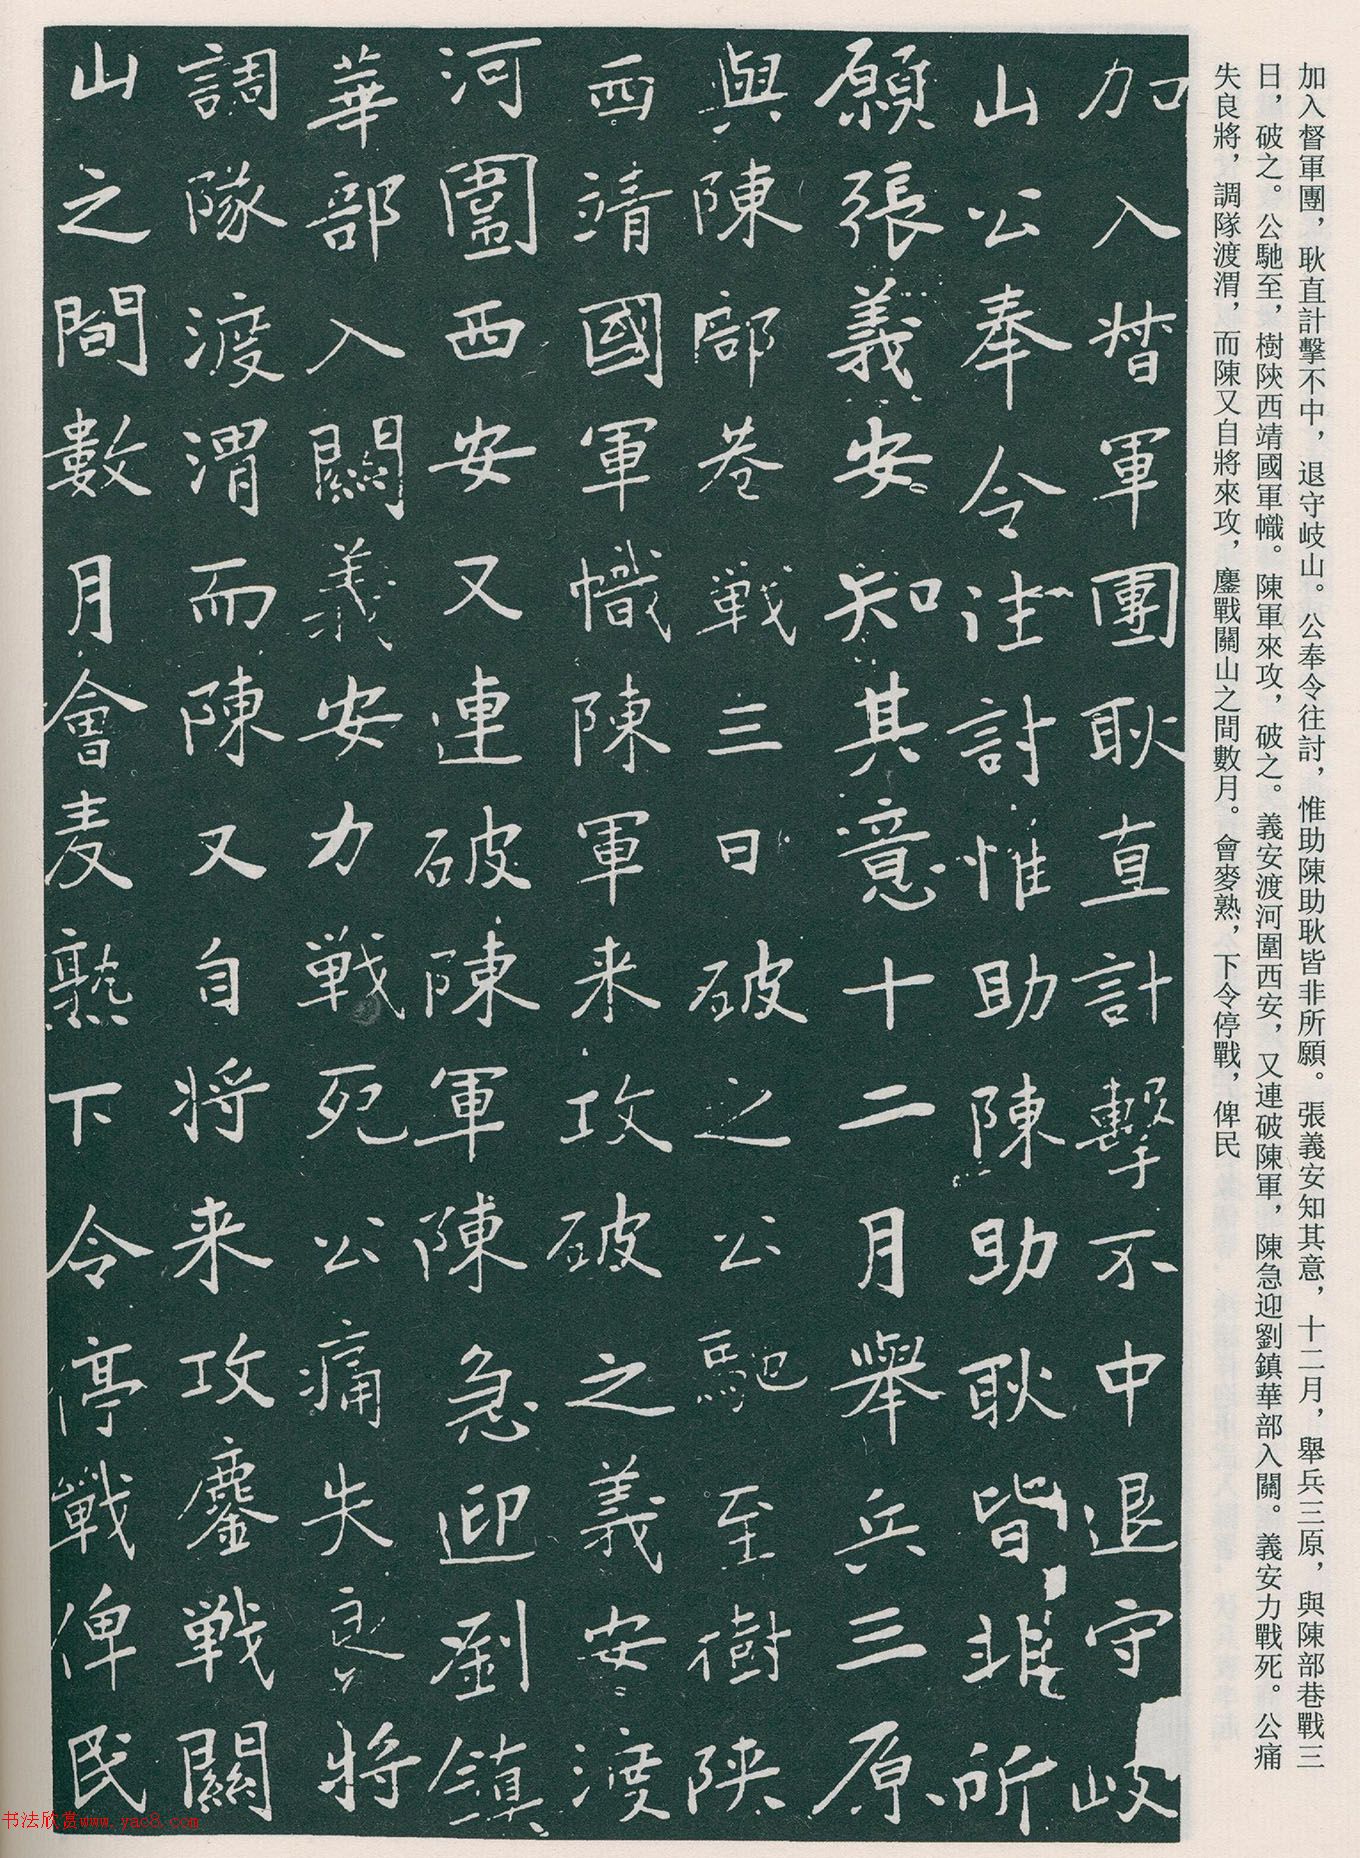 加入督軍團，耿直計擊不中，退守岐山。公奉令往討，惟助陳助耿皆非所願。張義安知其意，十二月，舉兵三原，與陳部巷戰三
日，破之。公馳至，樹陝西靖國軍幟。陳軍來攻，破之。義安渡河圍西安，又連破陳軍，陳急迎劉鎮華部入關。義安力戰死。公痛
失良將，調隊渡渭，而陳又自將來攻，鏖戰關山之間數月。會麥熟，下令停戰，俾民
加入督軍團耿直計擊不中退守岐
山公奉令往討惟助陳助耿皆非所
願張義安知其意十二月舉兵三原
與陳部巷戰三日破之公馳至樹陝
西靖國軍幟陳軍来攻破之義安渡
河圍西安又連破陳軍陳急迎劉鎮
華部入關義安力戰死公痛失良將
調隊渡渭而陳又自將来攻鏖戰關
山之間數月會麦熟下令停戰俾民
书法欣赏www.yac8.com